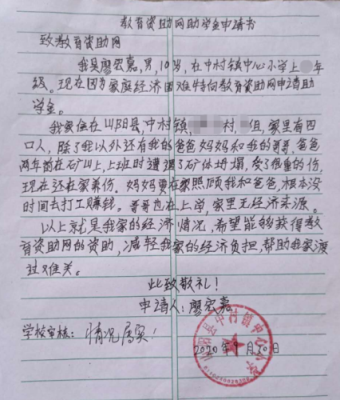 教育资助网助学金申请书
致教育资助网
我是廖宏嘉,男,10岁,在中村镇中心小学上 年
级。现在因为家庭经济困难特向教育资助网申请助
学金。
我家住在山阳县,中村镇, 村 组,家里有四
口人,除了我以外还有我的爸爸妈妈和我的哥哥,爸爸
两年前在矿山上,上班时遭遇了矿体坍塌,受了很重的伤,
现在还在家养伤。妈妈要在家照顾我和爸爸,根本没
时间去打工赚钱。哥哥也在上学,家里无经济来源。
以上就是我家的经济情况,希望能够获得教
育资助网的资助,减轻我家的经济负担,帮助我家渡
过难关。
此致敬礼!
申请人:廖宏嘉
学校审核:情况属实!
山阳县中村镇中心小学
2020年 月10日